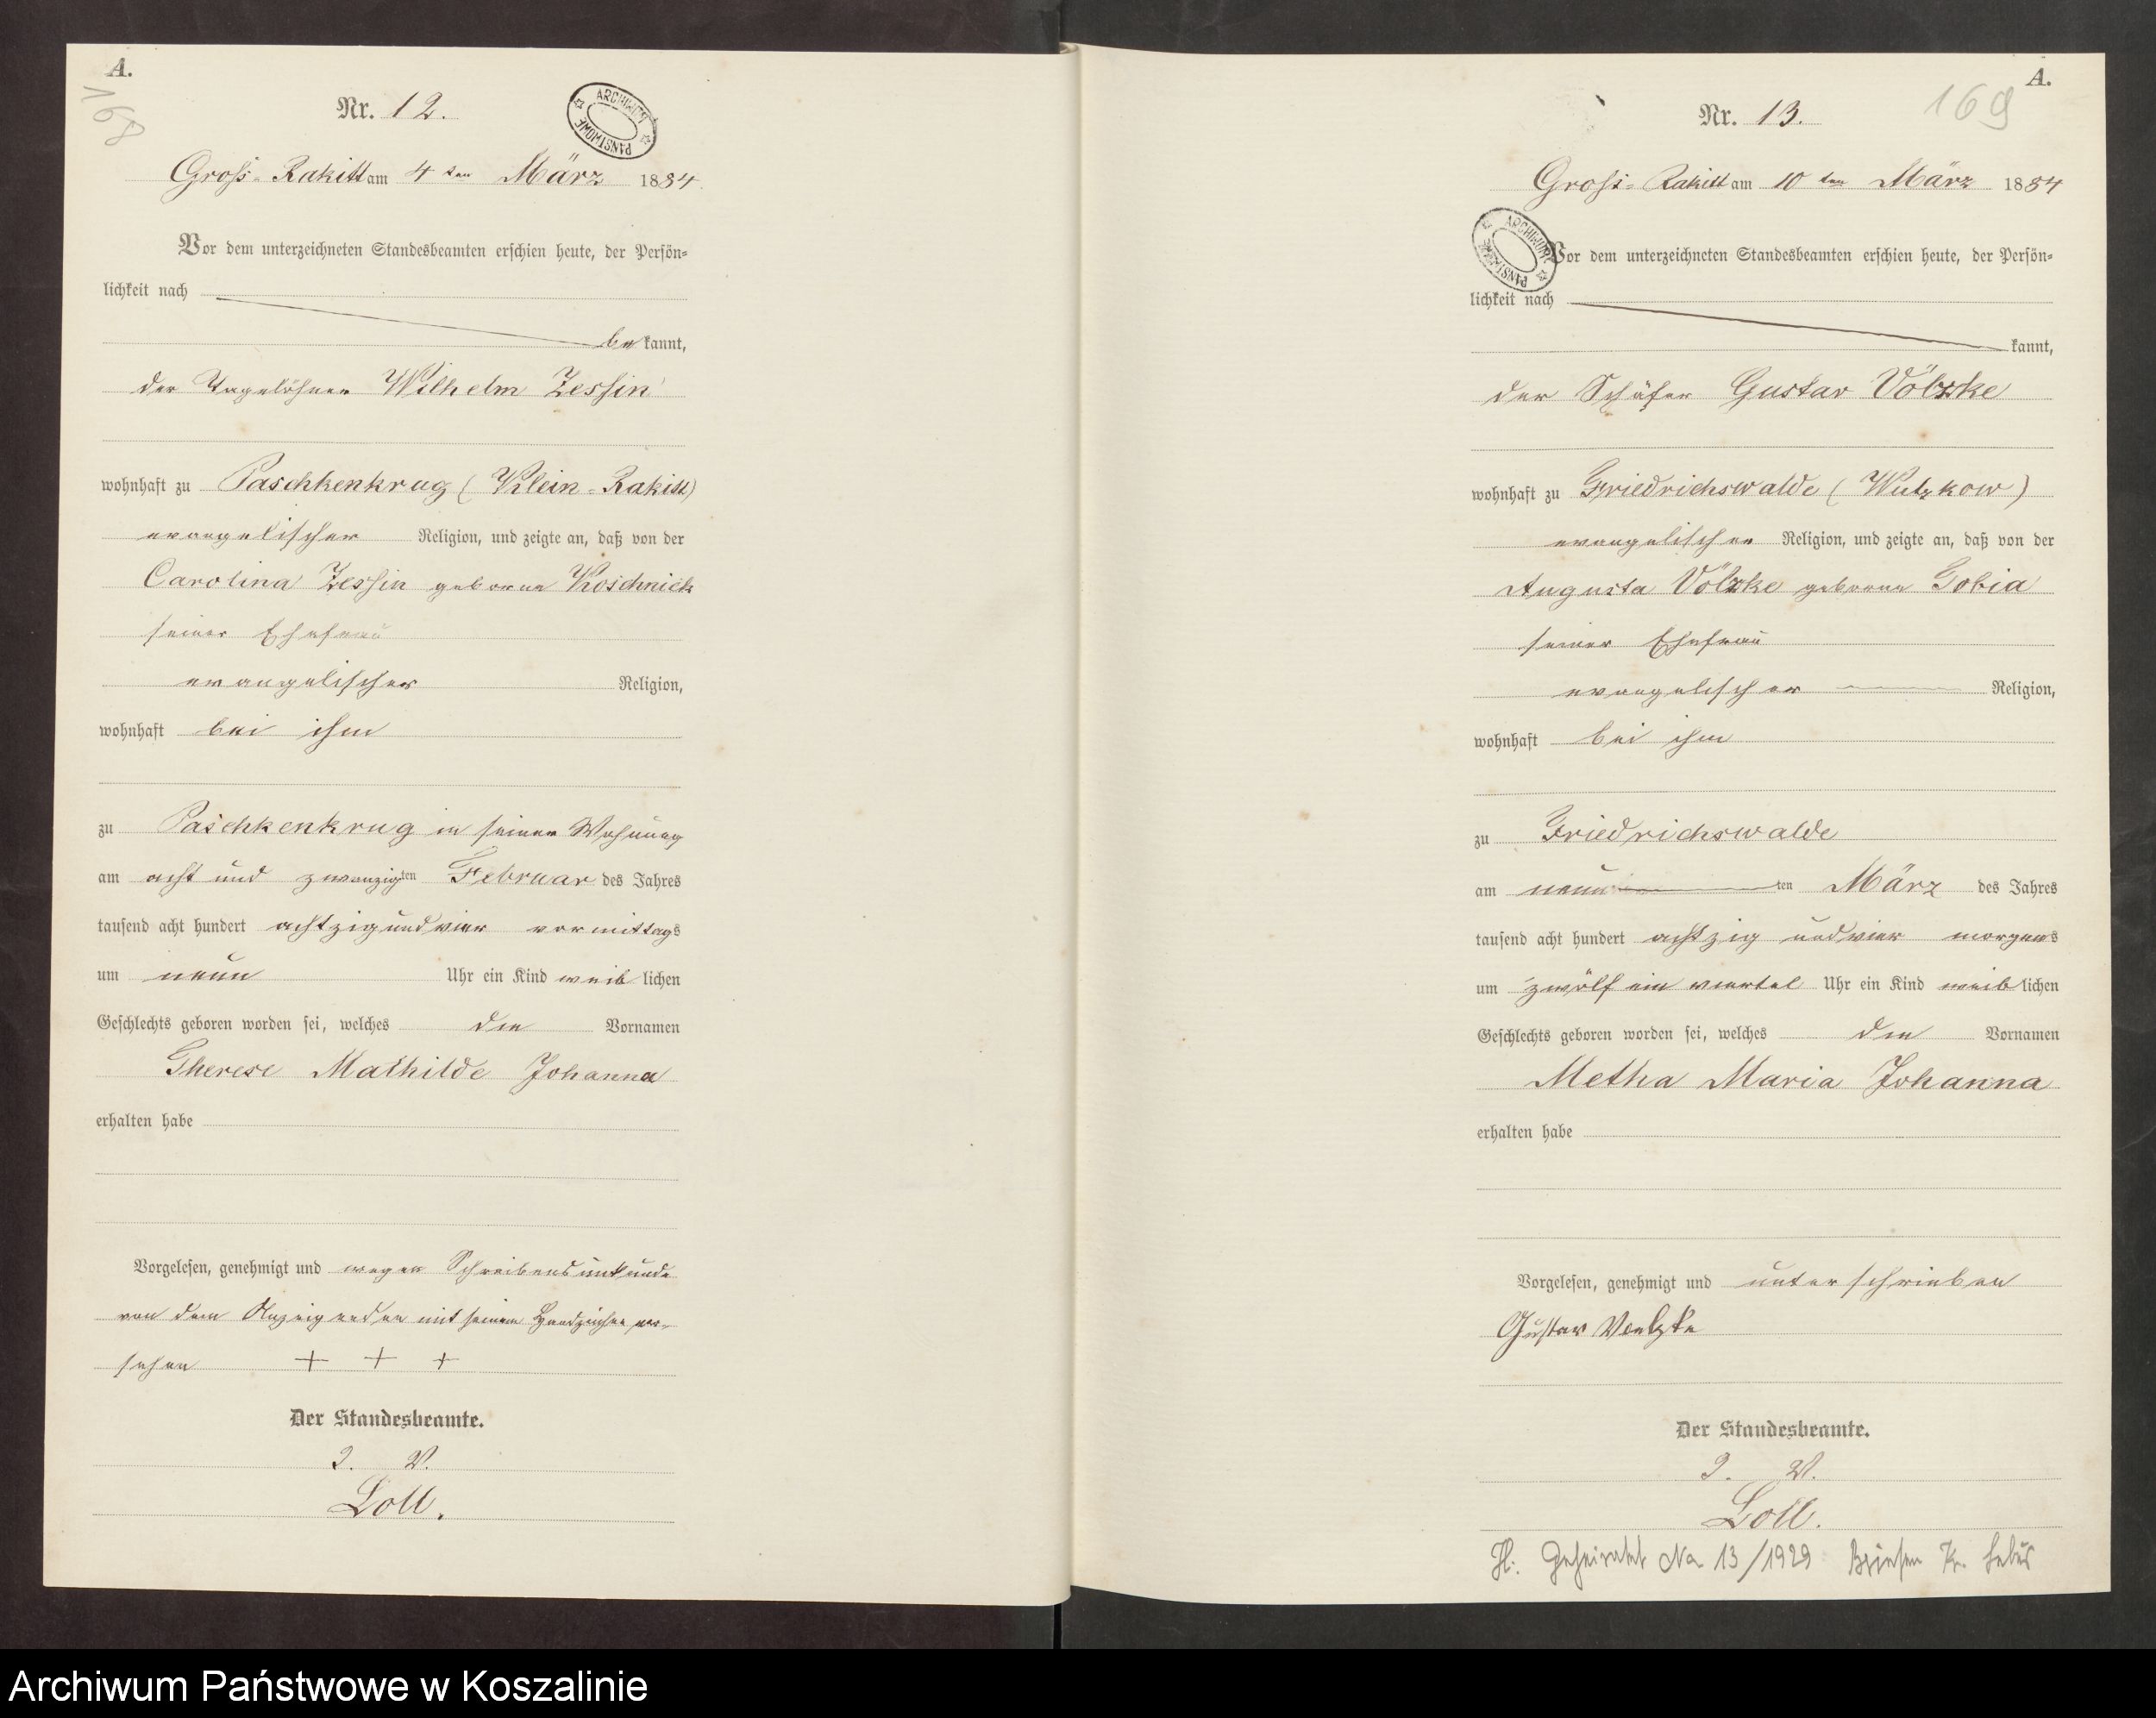 A.
168
Nr. 12.
ARCHIWUM PAŃSTWOWE
Gross-Rakitt am 4ten März 1884.
Vor dem unterzeichneten Standesbeamten erschien heute, der Persön-
lichkeit nach
be kannt,
der Tagelöhner Wilhelm Zessin
wohnhaft zu Paschkenkrug (Klein-Rakitt)
evangelischer Religion, und zeigte an, daß von der
Carolina Zessin geborne Koschnick
seiner Ehefrau
evangelischer Religion,
wohnhaft bei ihm
zu Paschkenkrug in seiner Wohnung
am acht und zwanzigsten Februar des Jahres
tausend acht hundert achtzig und vier vormittags
um neun Uhr ein Kind weib lichen
Geschlechts geboren worden sei, welches die Vornamen
Therese Mathilde Johanna
erhalten habe
Vorgelesen, genehmigt und wegen Schreibensunkunde
von dem Anzeigenden mit seinem Handzeichen ver-
sehen + + +
Der Standesbeamte.
I. V.
Loll.
A.
169
Nr. 13.
Gross-Rakitt am 10ten März 1884
ARCHIWUM PAŃSTWOWE
Vor dem unterzeichneten Standesbeamten erschien heute, der Persön-
lichkeit nach
kannt,
der Schäfer Gustav Völzke
wohnhaft zu Friedrichswalde (Wutzkow)
evangelischer Religion, und zeigte an, daß von der
Augusta Völzke geborne Tobia
seiner Ehefrau
evangelischer Religion,
wohnhaft bei ihm
zu Friedrichswalde
am neunten März des Jahres
tausend acht hundert achtzig und vier morgens
um zwölf ein viertel Uhr ein Kind weib lichen
Geschlechts geboren worden sei, welches die Vornamen
Metha Maria Johanna
erhalten habe
Vorgelesen, genehmigt und unterschrieben
Gustav Voelzke
Der Standesbeamte.
I. V.
Loll.
Geheiratet No 13/1929 Briesen Kr. Lebus
Archiwum Państwowe w Koszalinie